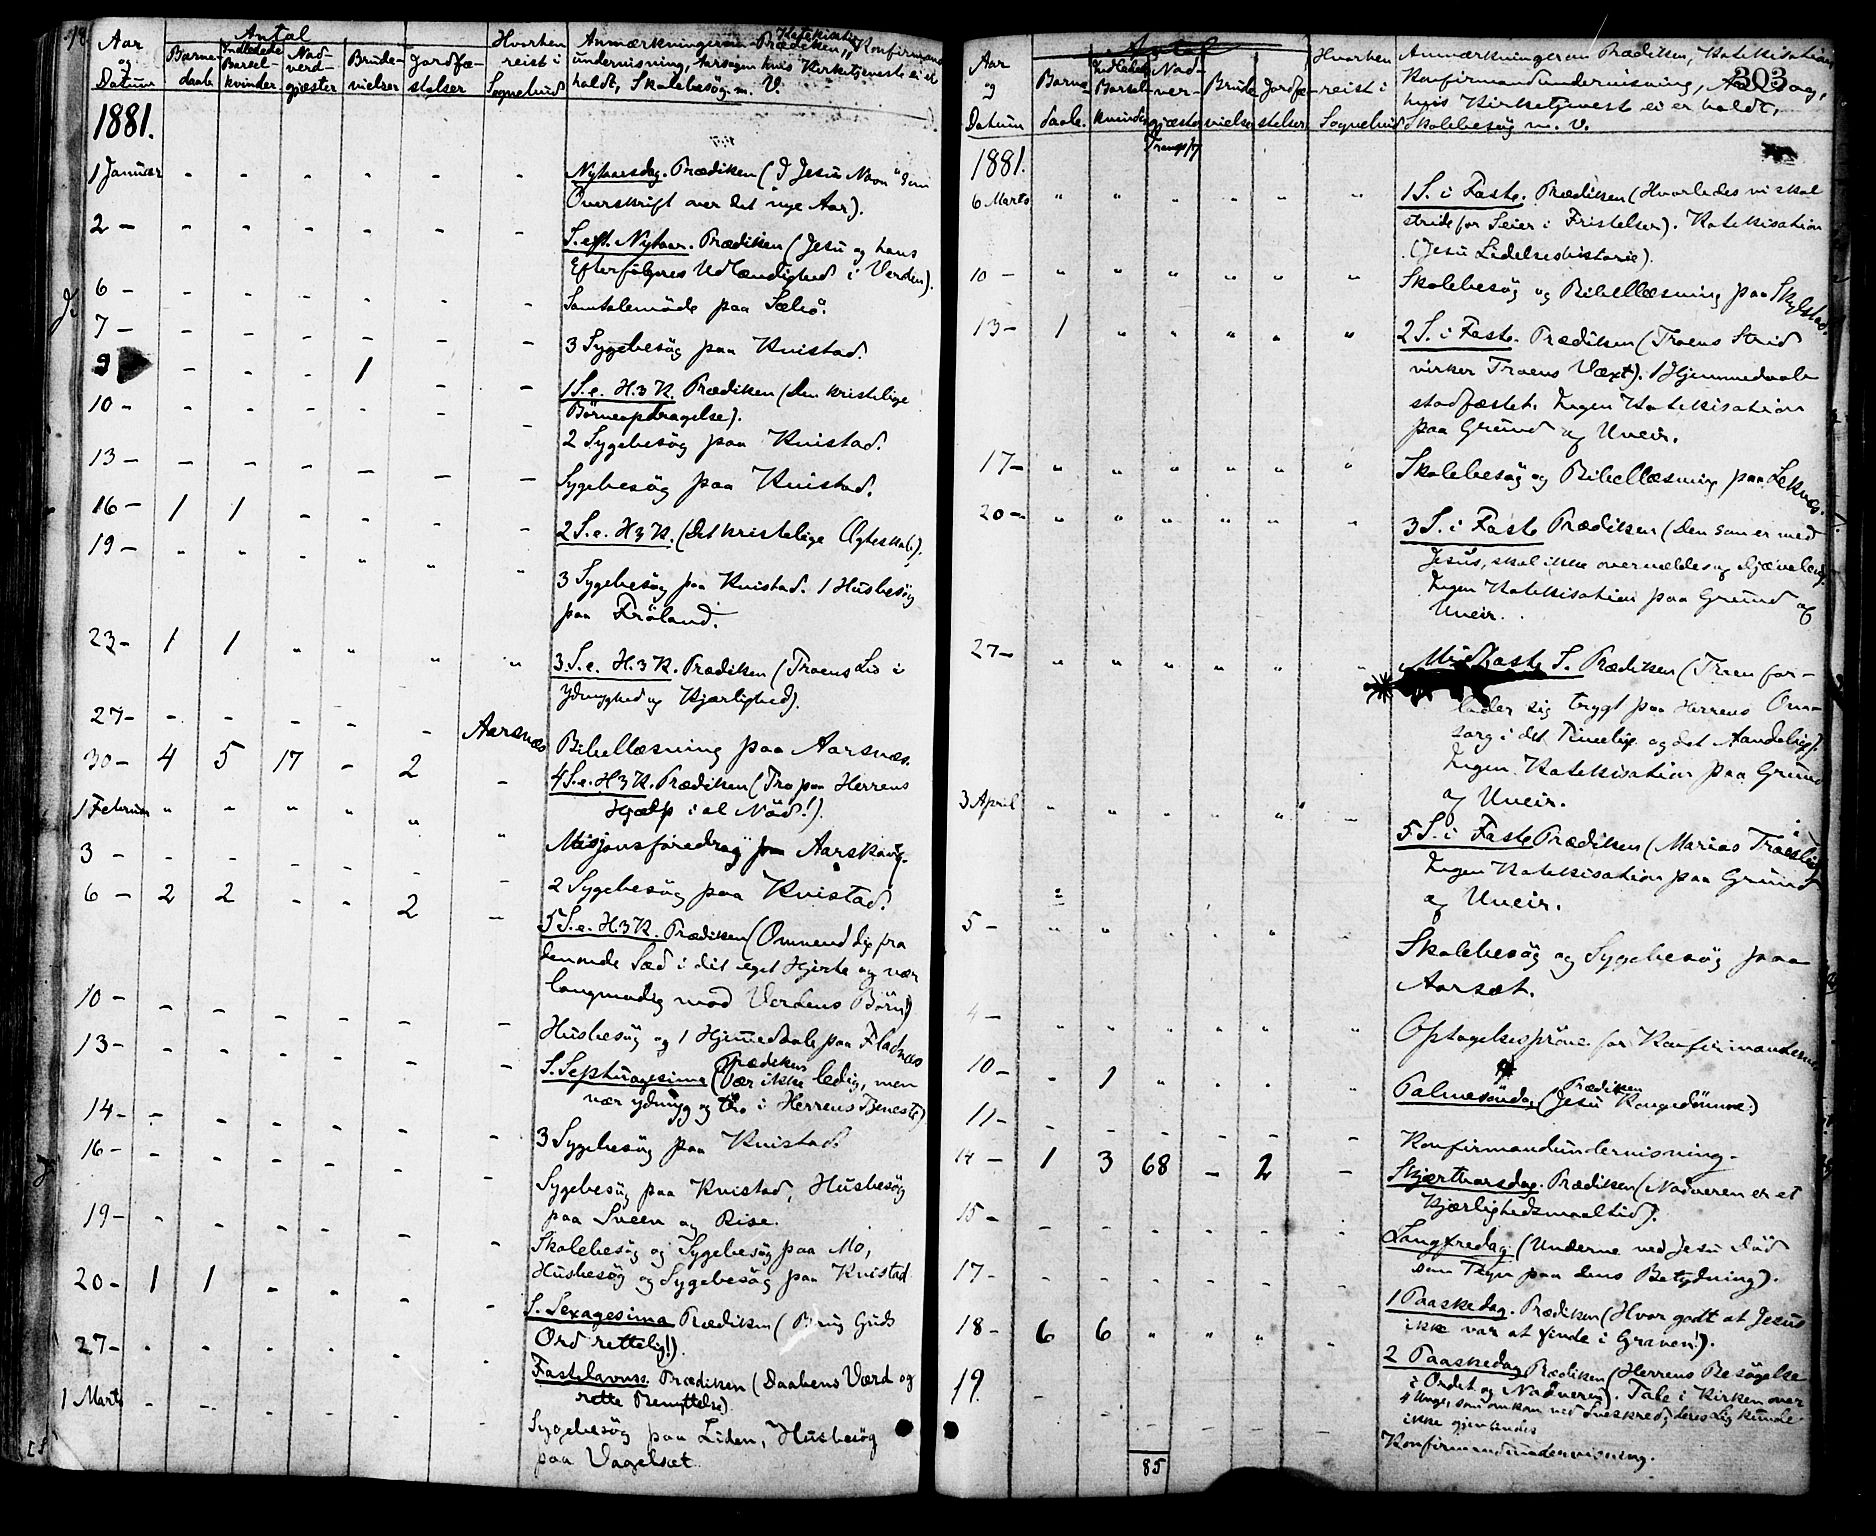 Aar og Datum
Antal
Barnedaab
Indledede Barselkvinder
Nadverdgjæster
Brudevielser
Jordfæstelser
Hvorhen reist i Sognebud
Anmærkninger om Prædiken, Katekisation, Konfirmand
undervisning, Aarsagen hvis Kirketjeneste ei er
holdt, Skolebesög m. V.
1881.
1 Januar - - - - - - Nytaarsdag. Prædiken (I Jesu Navn" som
Overskrift over det nye Aar).
2 - - - - - - - S. eft. Nytaar. Prædiken (Jesu og hans
Efterfölgeres Udlændighed i Verden).
6 - - - - - - - Samtalemöde paa Sæbö.
7 - - - - - - - 3 Sygebesög paa Kvistad.
9 - - - - 1 - - 1 S. e. H. 3 K. Prædiken (Den kristelige
Börneopdragelse).
10 - - - - - - - 2 Sygebesög paa Kvistad.
13 - - - - - - - Sygebesög paa Kvistad.
16 - 1 1 - - - - 2 S. e. H 3 K. (Det kristelige Ægteskab).
19 - " " " " " " 3 Sygebesög paa Kvistad. 1 Husbesög
paa Fröland.
23 - 1 1 " " " " 3 S. e. H. 3 K. Prædiken (Troens Liv i
Ydmyghed og Kjærlighed).
27 - - - - - - Aarsnæs Bibellæsning paa Aarsnæs.
30 - 4 5 17 - 2 - 4 S. e. H 3 K. Prædiken (Tro paa Herrens
Hjælp i al Nöd!).
1 Februar " - " " " " Misjonsforedrag paa Aarskoug.
3 - - - - - - - 2 Sygebesög paa Kvistad.
6 - 2 2 - - 2 - 5 S. e. H. 3 K. Prædiken (Omvend dig fra
den onde Sæd i dit eget Hjerte og vær
langmodig mod Verdens Börn!)
10 - - - - - - - Husbesög og 1 Hjemmedaab paa Fladnæs
13 - - - - - - - S. Septuagesima Prædiken (Vær ikke ledig, men
vær ydmyg og tro i Herrens Tjeneste)
14 - - - - - - - 3 Sygebesög paa Kvistad.
16 - - - - - - - Sygebesög paa Kvistad, Husbesög
paa Sveen og Rise.
19 - - - - - - - Skolebesög og Sygebesög paa Mo,
Husbesög og Sygebesög paa Kvistad
20 - 1 1 - - - - S. Sexagesima Prædiken (Brug Guds
Ord rettelig!).
27 - - - - - - Fastelavnss. Prædiken (Daabens Værd og
rette Benyttelse).
1 Marts - - - - - - Sygebesög paa Liden, Husbesög
paa Vagelsæt.
303
Aar og Datum
Antal
Barnedaab.
Indledede Barselkvinder
Nadvergjæster
Brudevielser
Jordfæstelser
Hvorhen reist i Sognebud
Anmærkninger om Prædiken, Katekisation,
Konfirmandundervisning, Aarsag,
hvis Kirketjeneste ei er holdt,
Skolebesög m. V.
Transp. 17
1881.
6 Marts " " " " " " 1 S. i Faste. Prædiken (Hvorledes vi skal
stride for Seier i Fristelser). Katekisation
(Jesu Lidelseshistorie).
10 - " " " " " " Skolebesög og Bibellæsning paa Skylstad.
13 - 1 " " " " " 2 S. i Faste. Prædiken (Troens Strid
virker Troens Væxt). 1 Hjemmedaab
stadfæstet. Ingen Katekisation
paa Grund af Uveir.
17 - " " " " " " Skolebesög og Bibellæsning paa Leknæs.
20 - " " " " " " 3 S. i Faste Prædiken (Den som er med
Jesus, skal ikke overvældes af Djævelen).
Ingen Katekisation paa Grund af
Uveir.
27 - " " " " " " Midfaste S. Prædiken (Troen for-
lader sig trygt paa Herrens Om-
sorg i det Timelige og det Aandelige).
Ingen Katekisation paa Grund
af Uveir.
3 April " " " " " - 5 S. i Faste Prædiken (Marias Troesliv)
Ingen Katekisation paa Grund
af Uveir.
5 - " " " " " " Skolebesög og Sygebesög paa
Aarsæt.
4 - " " " " " " Optagelsespröve for Konfirmanderne
10 - - 1 " " " " Palmesöndag Prædiken (Jesu Kongedömme.)
11 - - - - - - - Konfirmandundervisning.
14 - 1 3 68 - 2 - Skjærthorsdag. Prædiken (Nadveren er et
Kjærlighedsmaaltid).
15 - - - - - - - Langfredag (Underne ved Jesu Död
som Tegn paa dens Betydning).
17 - - - - - - - 1 Paaskedag. Prædiken (Hvor godt at Jesus
ikke var at finde i Graven!).
18 - 6 6 " " " " 2 Paaskedag Prædiken (Herrens Besögelse
i Ordet og Nadveren). Tale i Kirken over
4 Unge, som omkom ved Sneskred, deres Lig kunde
ikke gjenfindes
19. - - - Konfirmandundervisning.
85